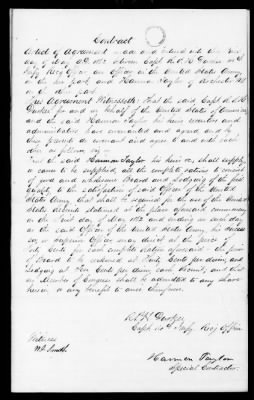 Contract
Articles of Agreement made and entered into this first
day of May A.D. 1862 between Capt R.
Infy Recg Officer an Officer in the United States Army
on the one part, and Harmon Taylor of Rochester
on the other part.
This Agreement Witnesseth: That the said Capt
for and on behalf of the United States of America,
and the said Harmon Taylor his heirs executors and
administrators have covenanted and agreed and by
these presents do covenant and agree to and with each
other as follows viz—
That the said Harmon Taylor his heirs &c, shall supply
or cause to be supplied all the complete rations to consist
of good and wholesome Board and Lodging of the first
quality, to the satisfaction of said Officer of the United
States Army, that shall be required for the use of the United
States recruits stationed at the place aforesaid commencing
on the first day of May 1862 and ending on such day
as the said Officer of the United States Army, his successor
&c, or superior Officer may direct at the price of
Forty Cents for each complete ration aforesaid— the price
of Board to be reckoned at Thirty Cents per diem, and
Lodging at Ten Cents per diem each recruit, and that
no Member of Congress shall be admitted to any share
herein or any benefit to arise therefrom.
Capt Infy Recg Officer
Witness
Smith
Harmon Taylor
Special Contractor